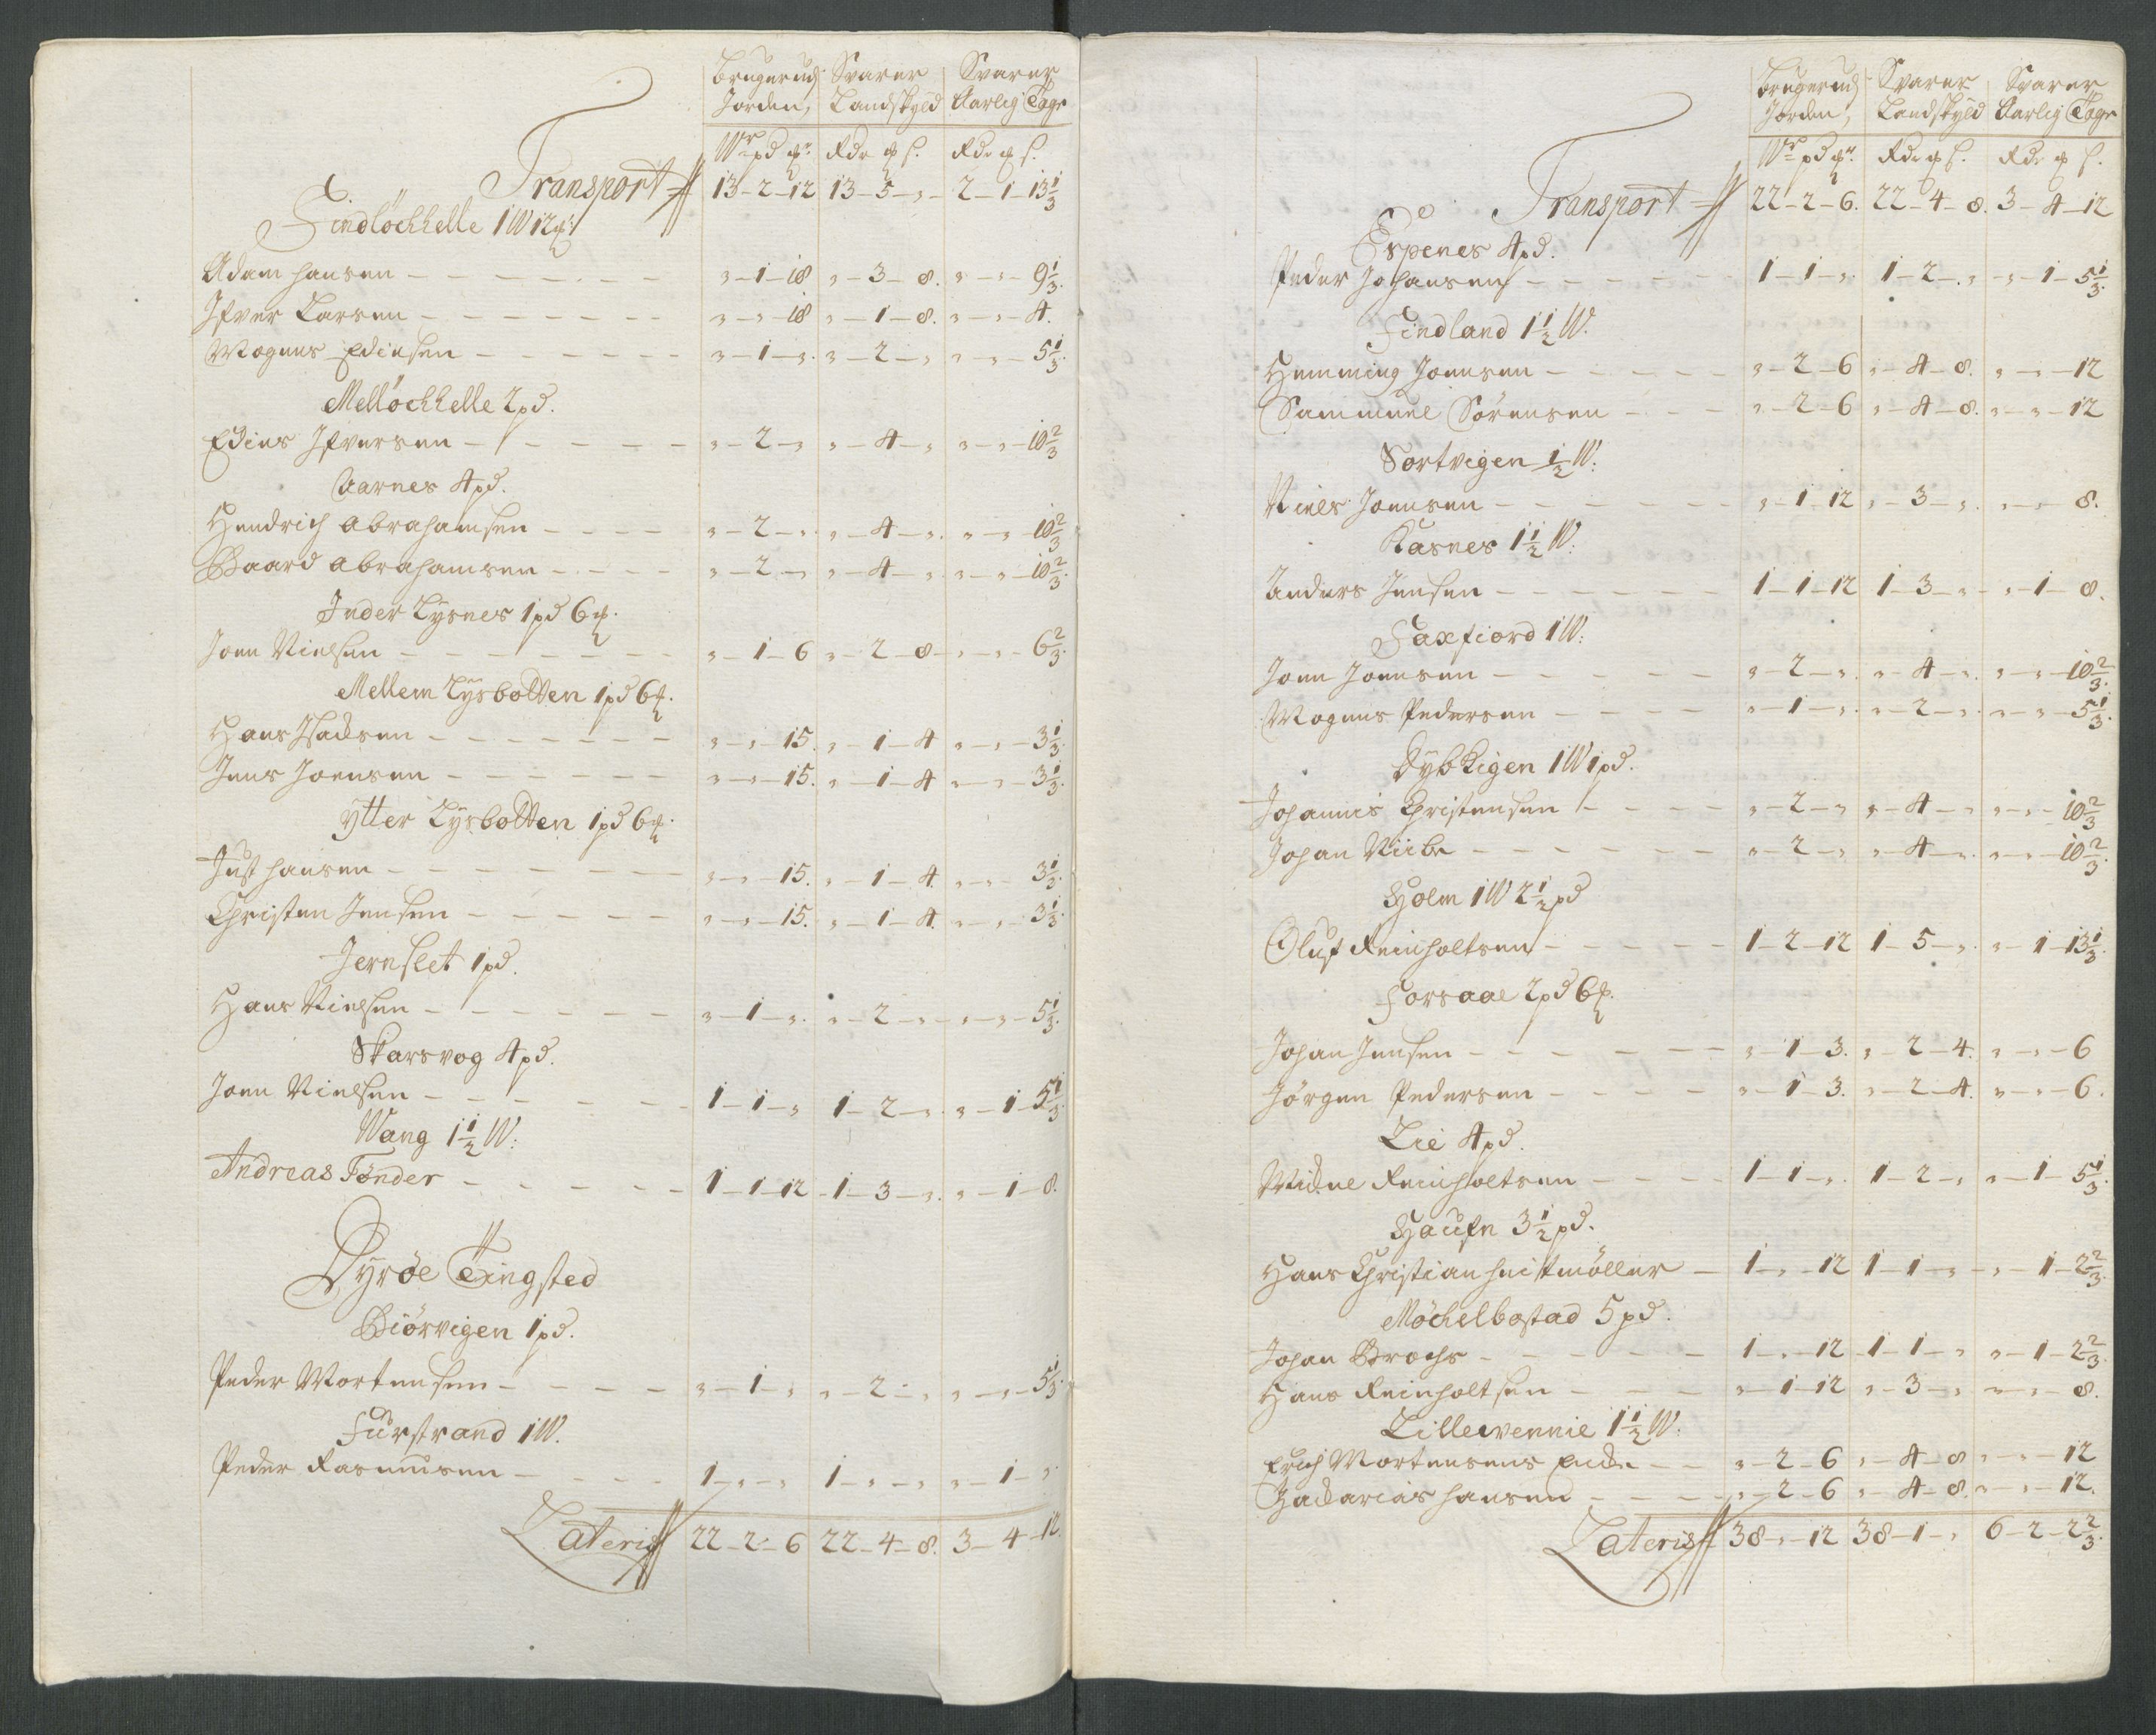 Brugerud Svarer Svarer
Jorden, Landskyld Aarlig Tage
W pd ꝶ. Rdr ꝶ s. Rdr ꝶ s.
Transport 13-2-12 13-5-„- 2-1-13 1/3
Findlöchhelle 1W 12ꝶ:
Adam hansen - - - - - „-1-18 „-3-8. „-„-9 1/3.
Ifver Larsen - - - - - - „-„-18 „-1-8. „-„-4.
Mogens Edinsen - - - - - „-1-„. „-2-„ „-„-5 1/3.
Mellöchhelle 2pd.
Edins Ifversen - - - - - „-2-„ „-4-„ „-„-10 2/3
Aarnes 4pd.
Hendrich Abrahamsen - - - - „-2-„. „-4-„. „-„-10 2/3
Baard Abrahamsen - - - - „-2-„ „-4-„. „-„-10 2/3.
Inder Lysnes 1pd 6ꝶ.
Joen Nielsen - - - - - - „-1-6 „-2-8 „-„-6 2/3.
Mellem Lysbotten 1pd 6ꝶ.
Hans Isacksen - - - - - - „-„-15. „-1-4 „-„-3 1/3.
Jens Joensen - - - - - - „-„-15. „-1-4 „-„-3 1/3.
ytter Lysbotten 1pd 6ꝶ.
Just hansen - - - - - - „-„-15. „-1-4. „-„-3 1/3.
Christen Jensen - - - - - „-„-15. „-1-4. „-„-3 1/3.
Jernslet 1pd.
Hans Nielsen - - - - - - „-1-„. „-2-„ „-„-5 1/3.
Skarsvog 4pd.
Joen Nielsen - - - - - - 1-1-„ 1-2-„. „-1-5 1/3.
Wang 1 1/2 W:
Andreas Tønder - - - - - 1-1-12 1-3-„. „-1-8.
Dyröe Tingsted
Biörvigen 1pd.
Peder Mortensen - - - - „-1-„ „-2-„ „-„-5 1/3.
Furstrand 1W.
Peder Rasmusen - - - - 1-„-„ 1-„-„ „-1-„
Lateris 22-2-6 22-4-8. 3-4-12
Brugerud Svarer Svarer
Jorden, Landskyld Aarlig Tage
W pd ꝶ. Rdr ꝶ s. Rdr ꝶ s.
Transport 22-2-6. 22-4-8. 3-4-12
Espenes 4pd.
Peder Johansen - - - - - 1-1-„. 1-2-„ „-1-5 1/3.
Findland 1 1/2 W.
Hemming Joensen - - - - - „-2-6 „-4-8. „-„-12
Sammuel Sörensen - - - „-2-6 „-4-8. „-„-12
Sortvigen 1/2 W:
Niels Joensen - - - - - - „-1-12 „-3-„. „-„-8.
Kasnes 1 1/2 W:
Anders Jensen - - - - - - 1-1-12 1-3-„ „-1-8.
Faxfiord 1W:
Joen Joensen - - - - - „-2-„. „-4-„. „-„-10 2/3.
Mogens Pedersen - - - - „-1-„. „-2-„. „-„-5 1/3.
Dybvigen 1W 1pd.
Johannis Christensen - - - - „-2-„ „-4-„ „-„-10 2/3
Johan Viibe - - - - - - „-2-„ „-4-„. „-„-10 2/3.
Holm 1W 2 1/2 pd
Oluf Reinholtsen - - - - - 1-2-12 1-5-„. „-1-13 1/3.
Forsaae 2pd 6ꝶ.
Johan Jensen - - - - - - „-1-3. „-2-4. „-„-6
Jörgen Pedersen - - - - „-1-3. „-2-4. „-„-6.
Lie 4pd.
Michel Reinholtsen - - - - 1-1-„. 1-2-„ „-1-5 1/3.
Haufn 3 1/2 pd.
Hans Christian heitmöller - 1-„-12 1-1-„ „-1-2 2/3.
Möchelbostad 5pd.
Johan Brochs - - - - - 1-„-12 1-1-„ „-1-2 2/3.
Hans Reinholtsen - - - - „-1-12 „-3-„ „-„-8.
Lillewennie 1 1/2 W:
Erich Mortensens Encke - - „-2-6 „-4-8 „-„-12
Zacharias hansen - - - - „-2-6 „-4-8. „-„-12.
Lateris 38-„-12 38-1-„ 6-2-2 2/3.